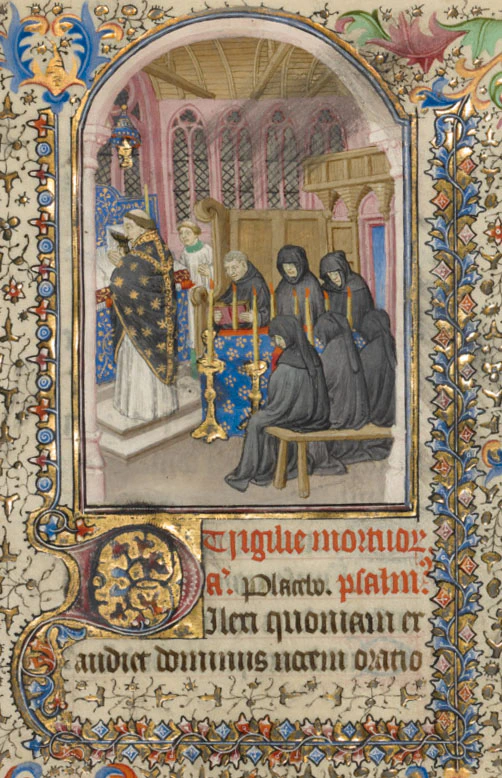 Vigilie mortuoꝝ
a͞. Placebo. psalmꝰ
Dilexi quoniam ex
audiet dominus uocem oratio